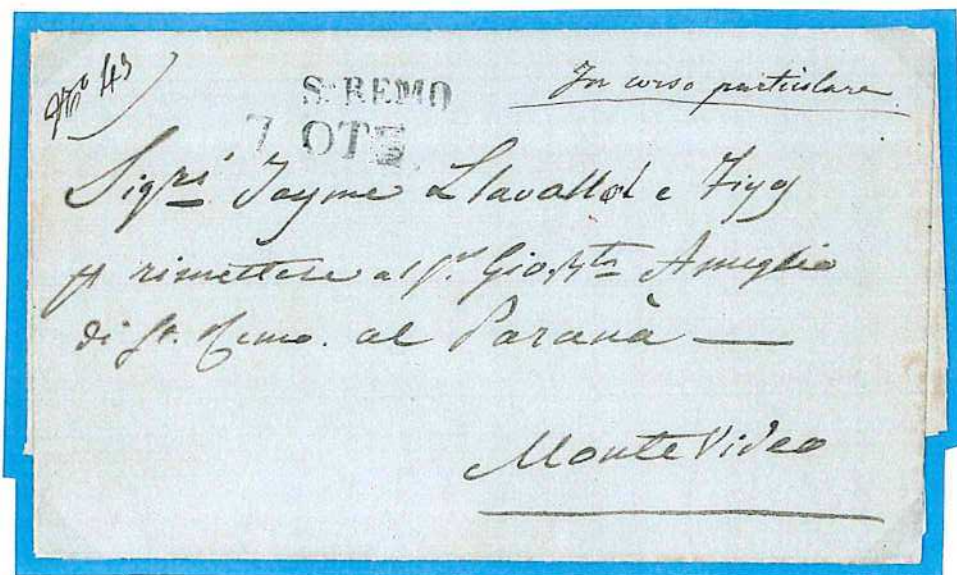 No 43
S. REMO
7 OTE
In corso particolare
Sigri Jayme Llavallol e Figs
pr rimettere al Sr Gio. Bta Ameglio
di Sn Remo. al Paranà —
MonteVideo